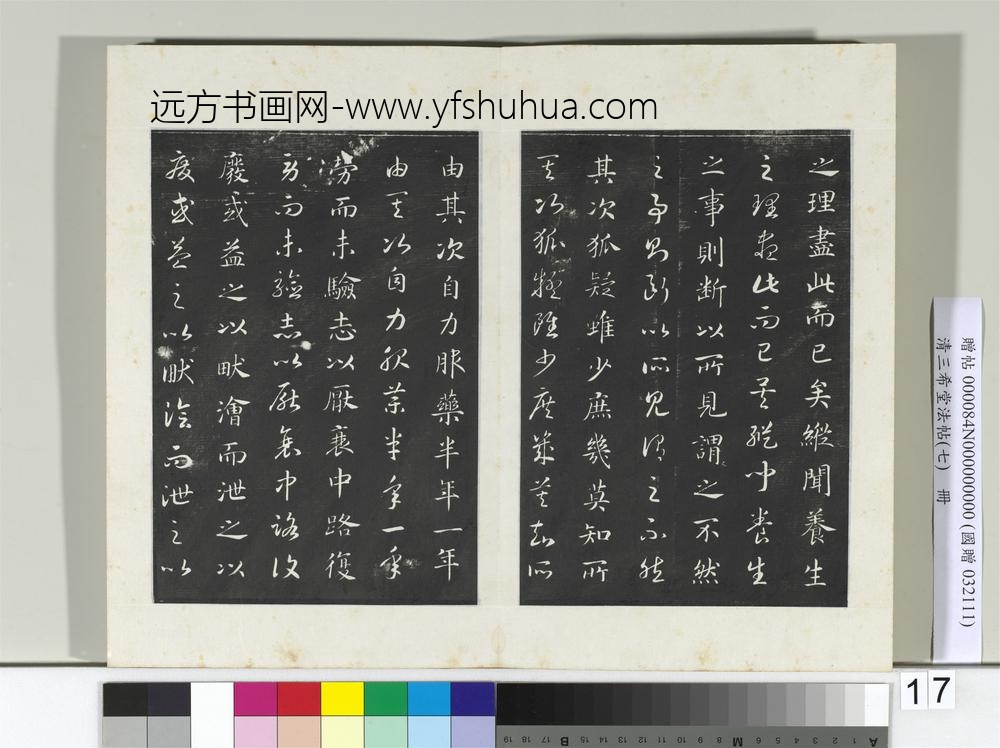 远方书画网-www.yfshuhua.com
之理盡此而已矣縱聞養生
之理盡此而已矣縱聞養生
之事則断以所見謂之不然
之事則断以所見謂之不然
其次狐疑雖少庶幾莫知所
其次狐疑雖少庶幾莫知所
由其次自力服藥半年一年
由其次自力服藥半年一年
勞而未驗志以厭衰中路復
勞而未驗志以厭衰中路復
廢或益之以畎澮而泄之以
廢或益之以畎澮而泄之以
贈帖 000084N000000000 (國贈 032111)
清三希堂法帖(七) 冊
17
A 1 2 3 4 5 6 M 8 9 10 11 12 13 14 15 B 17 18 19